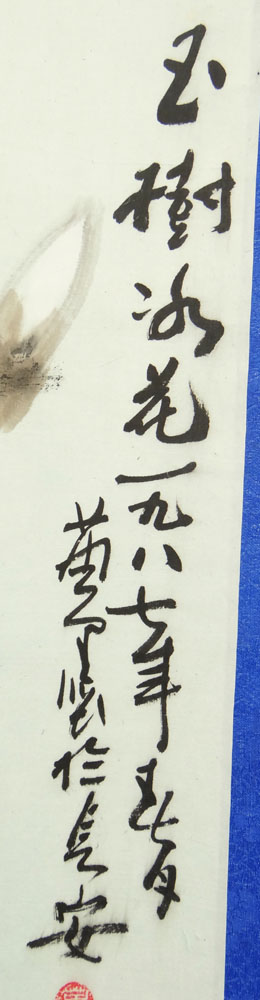 玉樹冰花一九八七年春月
於長安